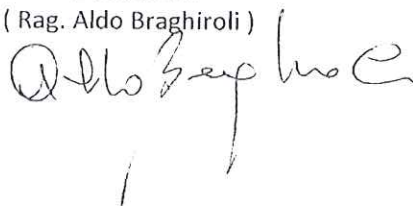 ( Rag. Aldo Braghiroli )
Aldo Braghiroli